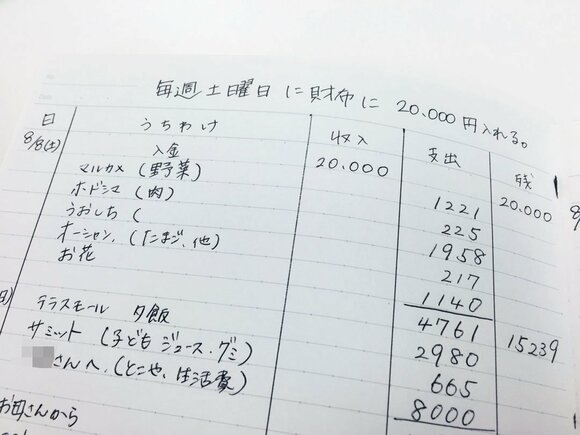 毎週土曜日に財布に20,000円入れる。
日 うちわけ 収入 支出 残
8/8(土) 入金 20.000 20.000
マルカメ(野菜) 1221
ホドシマ(肉) 225
うおしち( 1958
オーシャン.(たまご、他) 217
お花 1140
4761 15239
テラスモール 夕飯 2980
サミット(子どもジュース・グミ) 665
さんへ.(とこや、生活費) 8000
お母さんから